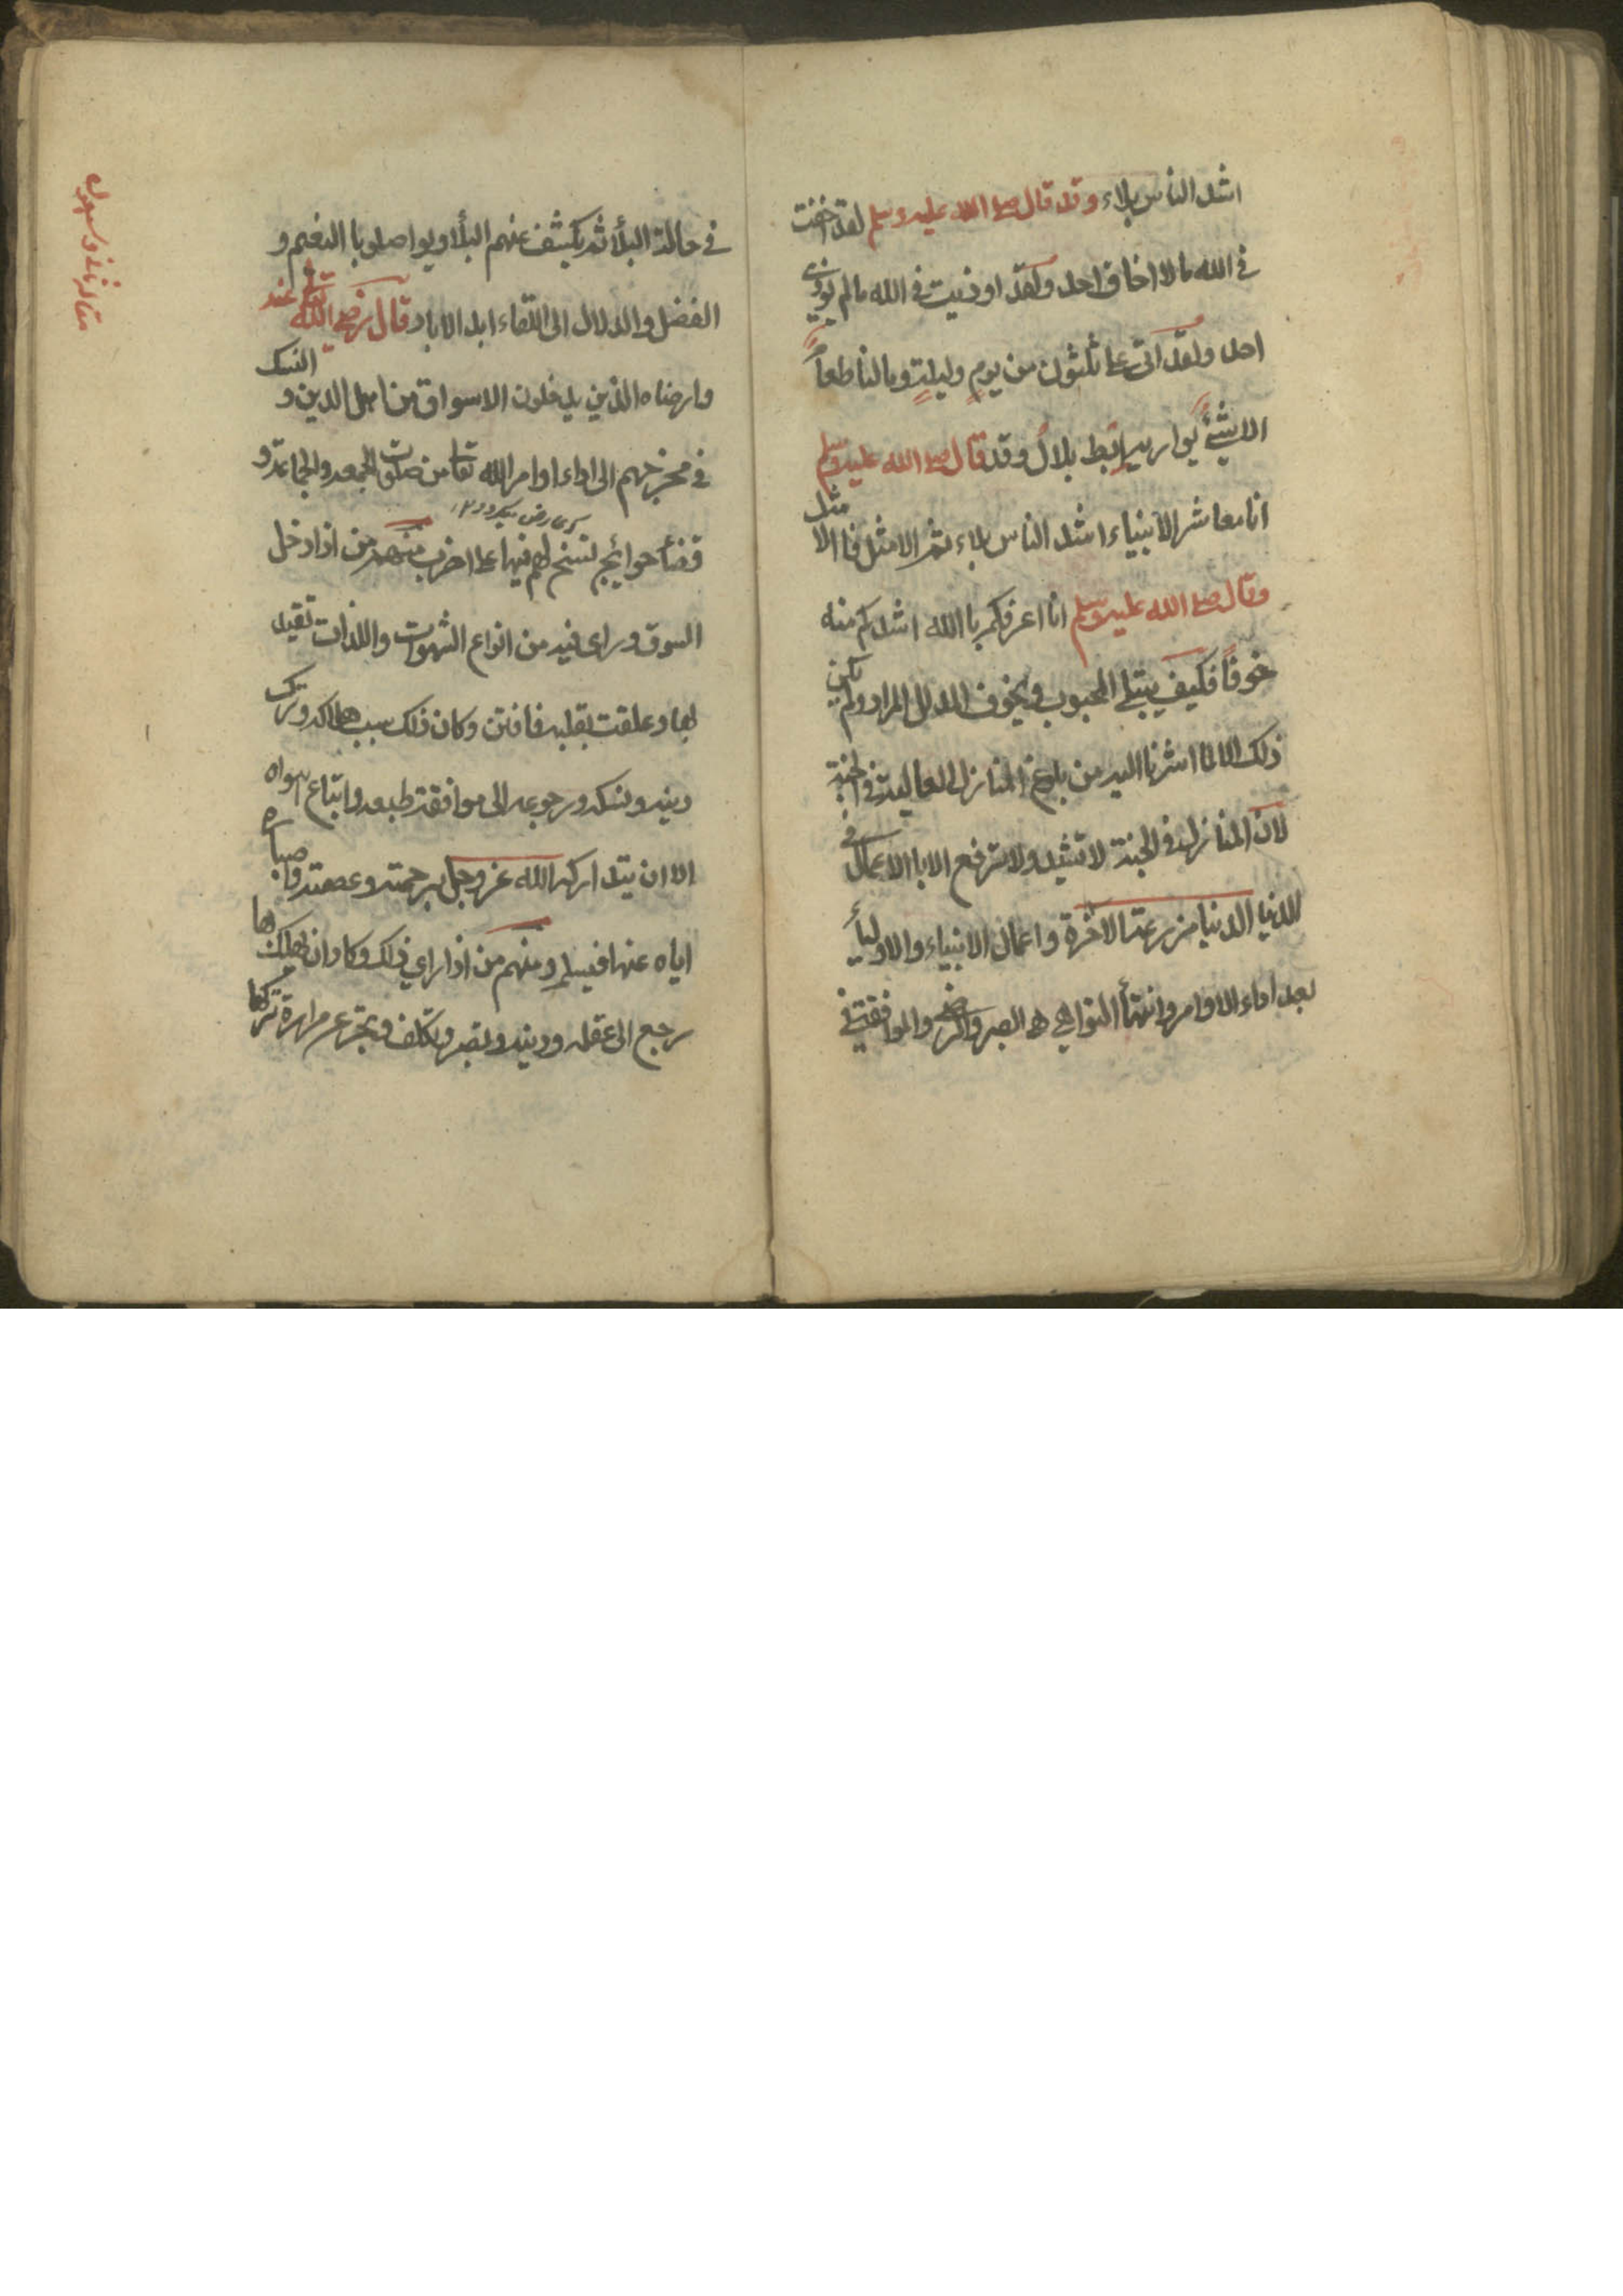 اشد الناس بلاء وقد قال صلى الله عليه وسلم لقد اخفت
فى الله ما لا اخاف احد ولقد اوذيت فى الله ما لم يوذى
احد ولقد اتى على ثلثون من يوم وليلة وما لنا طعاما
الا شئ يوارىه ابط بلال وقد قال صلى الله عليه وسلم
انا معاشر الانبياء اشد الناس بلاء ثم الامثل فا الامثل
وقال صلى الله عليه وسلم انا اعرفكم با الله اشدكم منه
خوفا فكيف يبتلى المحبوب ويخوف المدلل المراد ولم يكن
ذلك الا لما اشرنا اليه من بلوغ المنازل العالية فى الجنة
لان المنازل فى الجنة لا تشيد ولا ترفع الا با الاعمال فى
الدنيا الدنيا مزرعة الاخرة واعمال الانبياء والاوليأ
بعد اداء الاوامر وانتهأ النواهى هو الصبر والرضى والموافقة
فى حالة البلأ ثم يكشف عنهم البلأ ويواصلو با النعيم و
الفضل والدلال الى اللقاء ابد الاباد قال رضى الله تعالى عنه
وارضاه الذين يدخلون الاسواق من اهل الدين و النسك
فى مخرجهم الى اداء اوامر الله تعا من صلوة الجمعه والجماعة و
قضأ حوائج تسنح لهم فيها على اضرب منهم من اذا دخل
السوق وراى فيه من انواع الشهوات واللذات تقيد
بها وعلقت بقلبه فافتن وكان ذلك سبب هلاكه وتركه
دينه ونسكه ورجوعه الى موافقة طبعه واتباع هواه
الا ان يتداركه الله عز وجل برحمته وعصمته واصباره
اياه عنها فيسلم ومنهم من اذا راي ذلك وكاد ان يهلك بها
رجع الى عقله ودينه وتصبر وتكلف وتجرع مرارة تركها